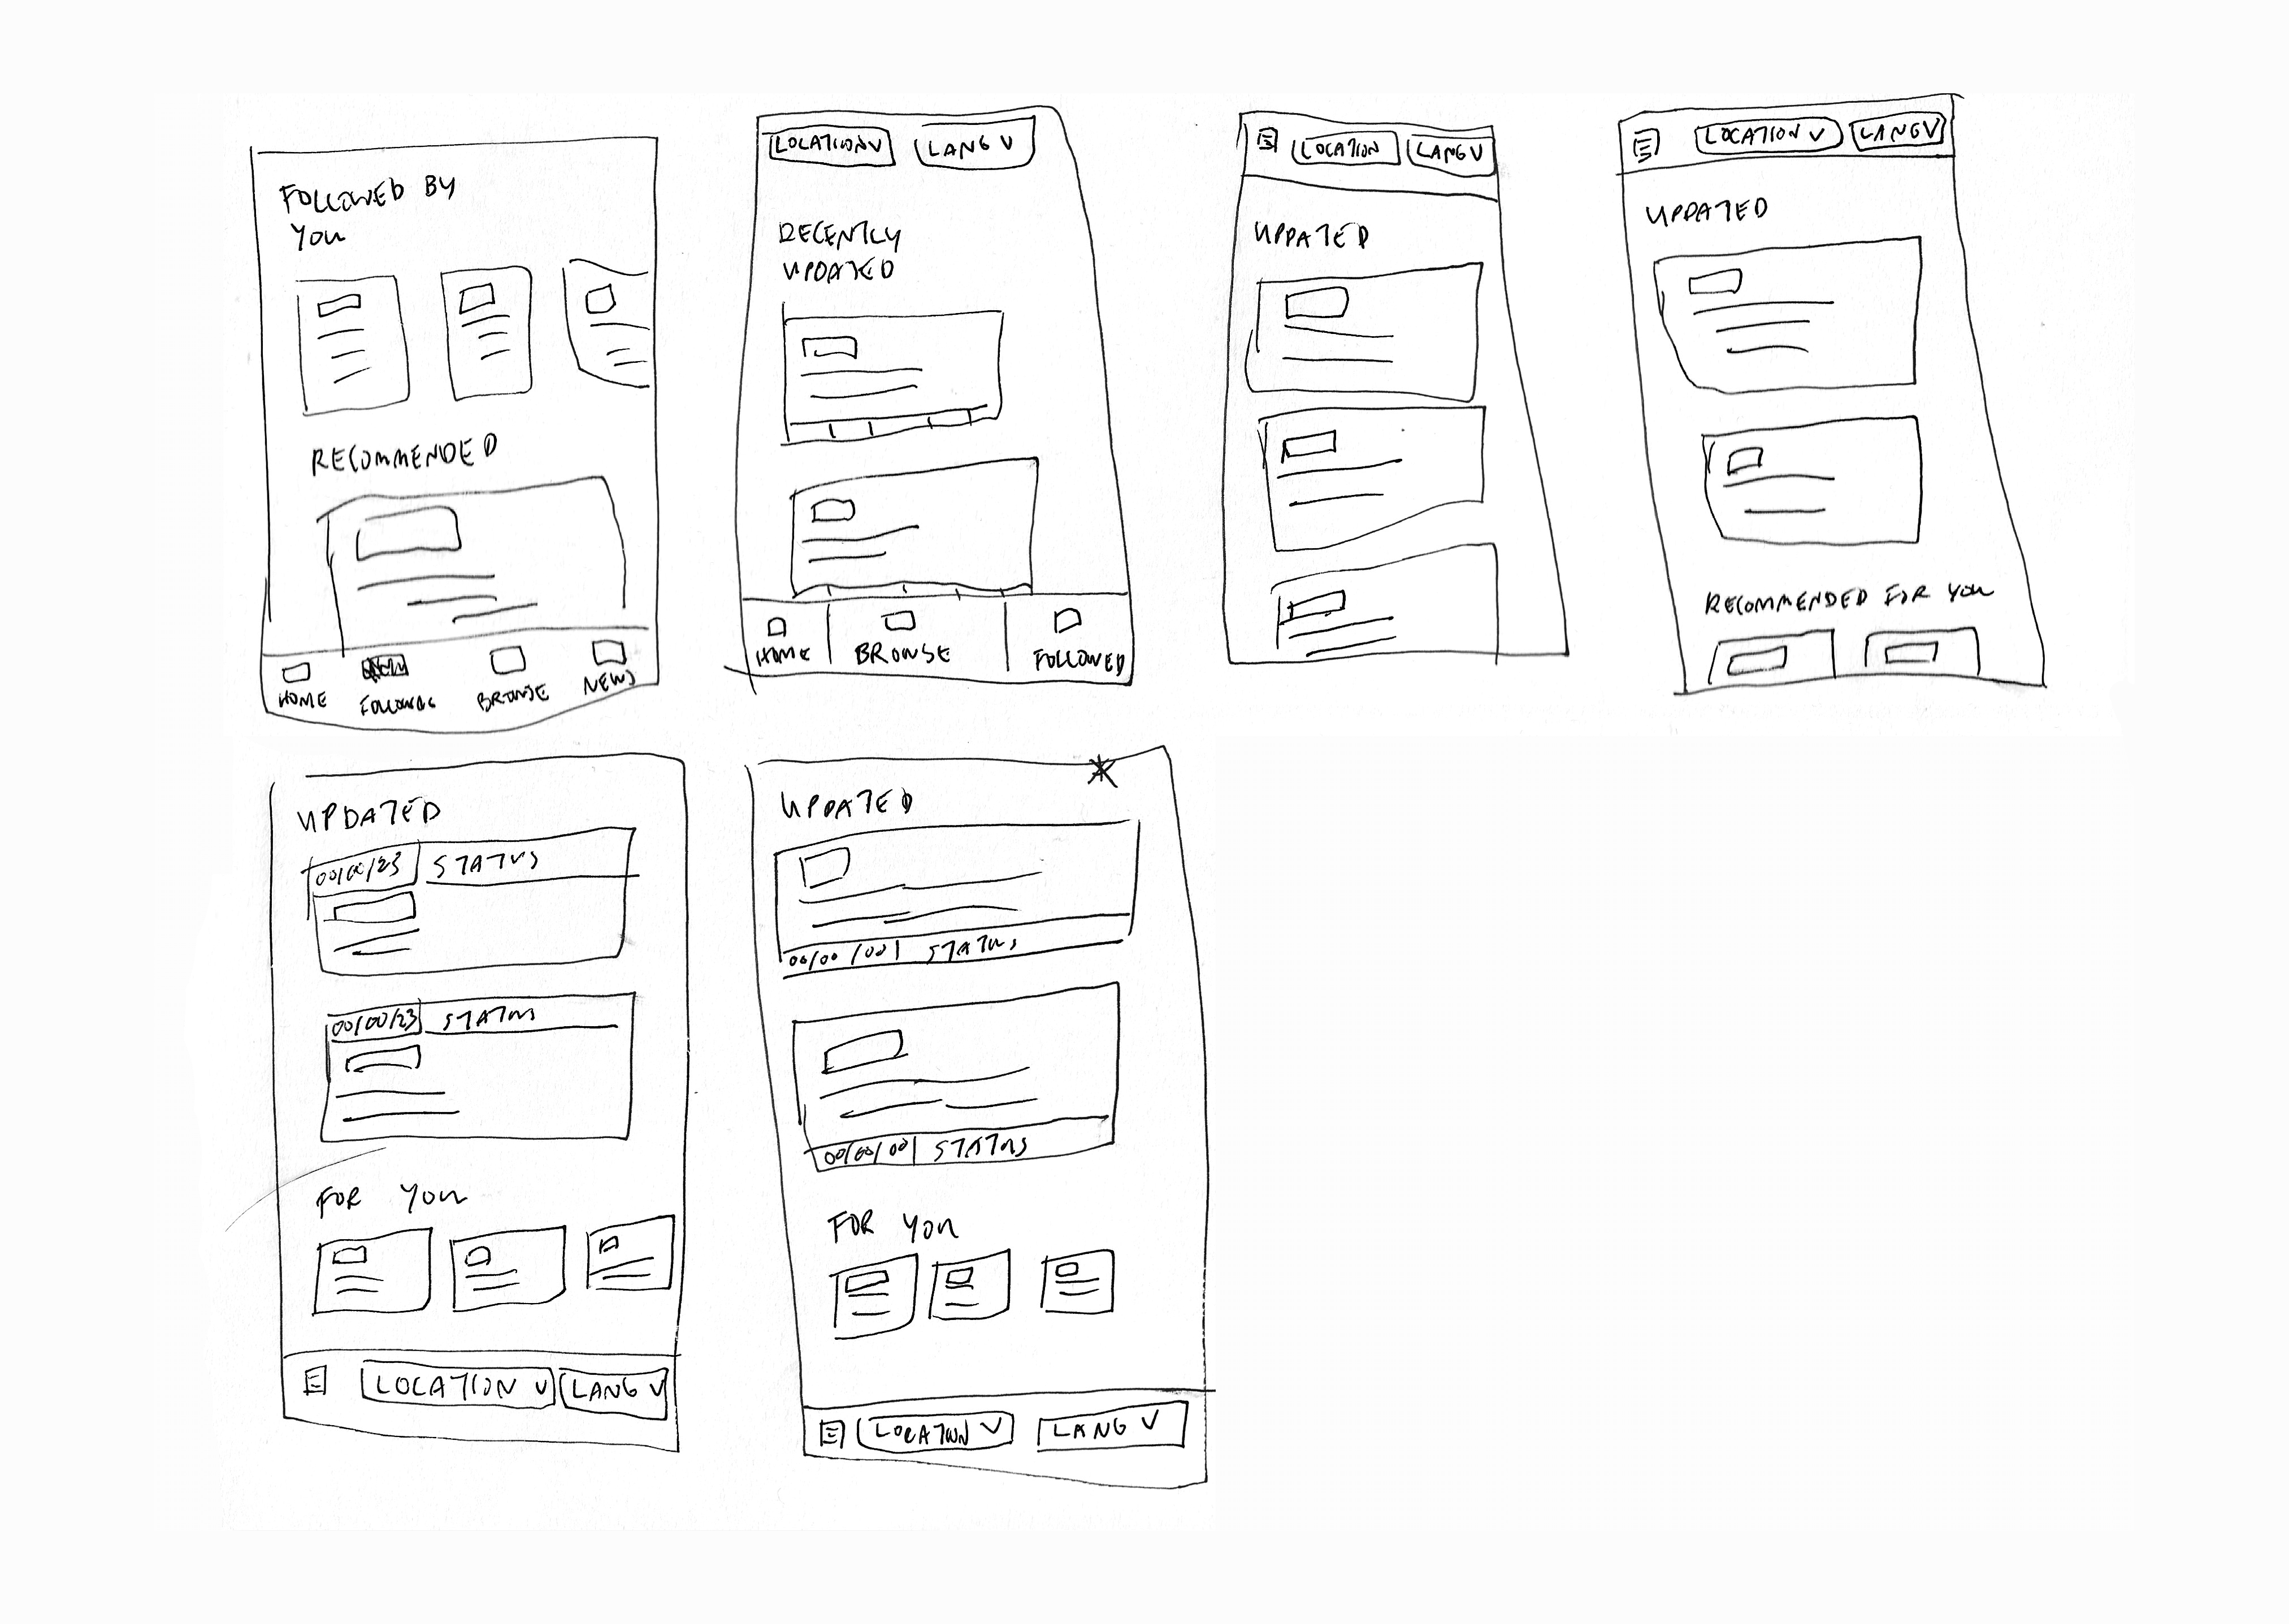 FOLLOWED BY
YOU
RECOMMENDED
HOME
BROWSE
NEWS
LOCATION V
LANG V
RECENTLY
UPDATED
HOME
BROWSE
FOLLOWED
LOCATION
LANG V
UPDATED
LOCATION V
LANG V
UPDATED
RECOMMENDED FOR YOU
UPDATED
00/00/23 STATUS
00/00/23 STATUS
FOR YOU
LOCATION V
LANG V
UPDATED
00/00/00 STATUS
00/00/00 STATUS
FOR YOU
LOCATION V
LANG V